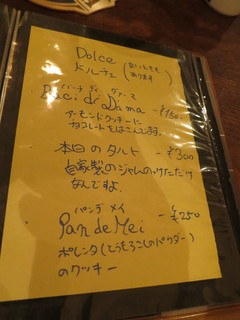 Dolce
ドルチェ
あります
バーチ ディ ダーマ
Baci di Dama -¥150
アーモンドクッキーに
チョコレートをはさんでます。
本日のタルト -¥300
自家製のジャムの
なんですよ。
パンデ メイ -¥250
Pan de Mei
ポレンタ(とうもろこしのパウダー)
のクッキー